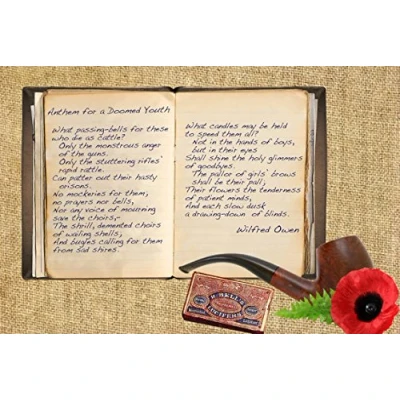 Anthem for a Doomed Youth
What passing-bells for these
who die as cattle?
Only the monstrous anger
of the guns.
Only the stuttering rifles'
rapid rattle.
Can patter out their hasty
orisons.
No mockeries for them;
no prayers nor bells,
Nor any voice of mourning
save the choirs,-
The shrill, demented choirs
of wailing shells;
And bugles calling for them
from sad shires.
What candles may be held
to speed them all?
Not in the hands of boys,
but in their eyes
Shall shine the holy glimmers
of goodbyes.
The pallor of girls' brows
shall be their pall;
Their flowers the tenderness
of patient minds,
And each slow dusk
a drawing-down of blinds.
Wilfred Owen
R. BELL &
LUCIFERS